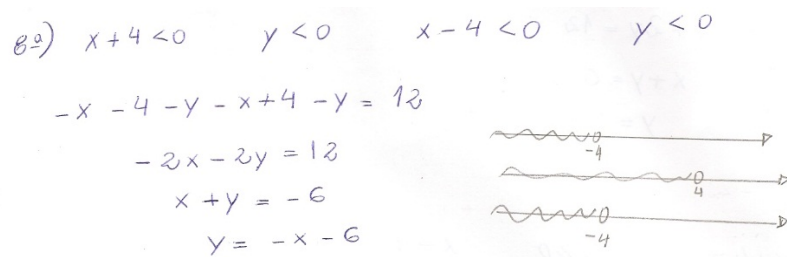 8ª) x + 4 < 0 y < 0 x - 4 < 0 y < 0
- x - 4 - y - x + 4 - y = 12
- 2x - 2y = 12
x + y = - 6
y = - x - 6
-4
4
-4